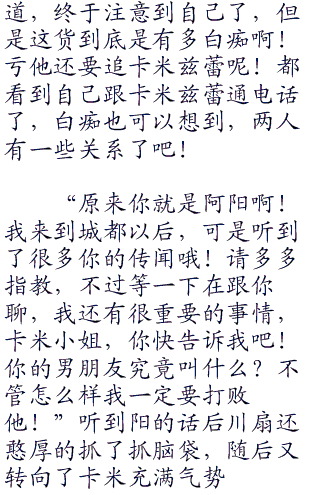 道，终于注意到自己了，但
是这货到底是有多白痴啊！
亏他还要追卡米兹蕾呢！都
看到自己跟卡米兹蕾通电话
了，白痴也可以想到，两人
有一些关系了吧！
“原来你就是阿阳啊！
我来到城都以后，可是听到
了很多你的传闻哦！请多多
指教，不过等一下在跟你
聊，我还有很重要的事情，
卡米小姐，你快告诉我吧！
你的男朋友究竟叫什么？不
管怎么样我一定要打败
他！”听到阳的话后川扇还
憨厚的抓了抓脑袋，随后又
转向了卡米充满气势